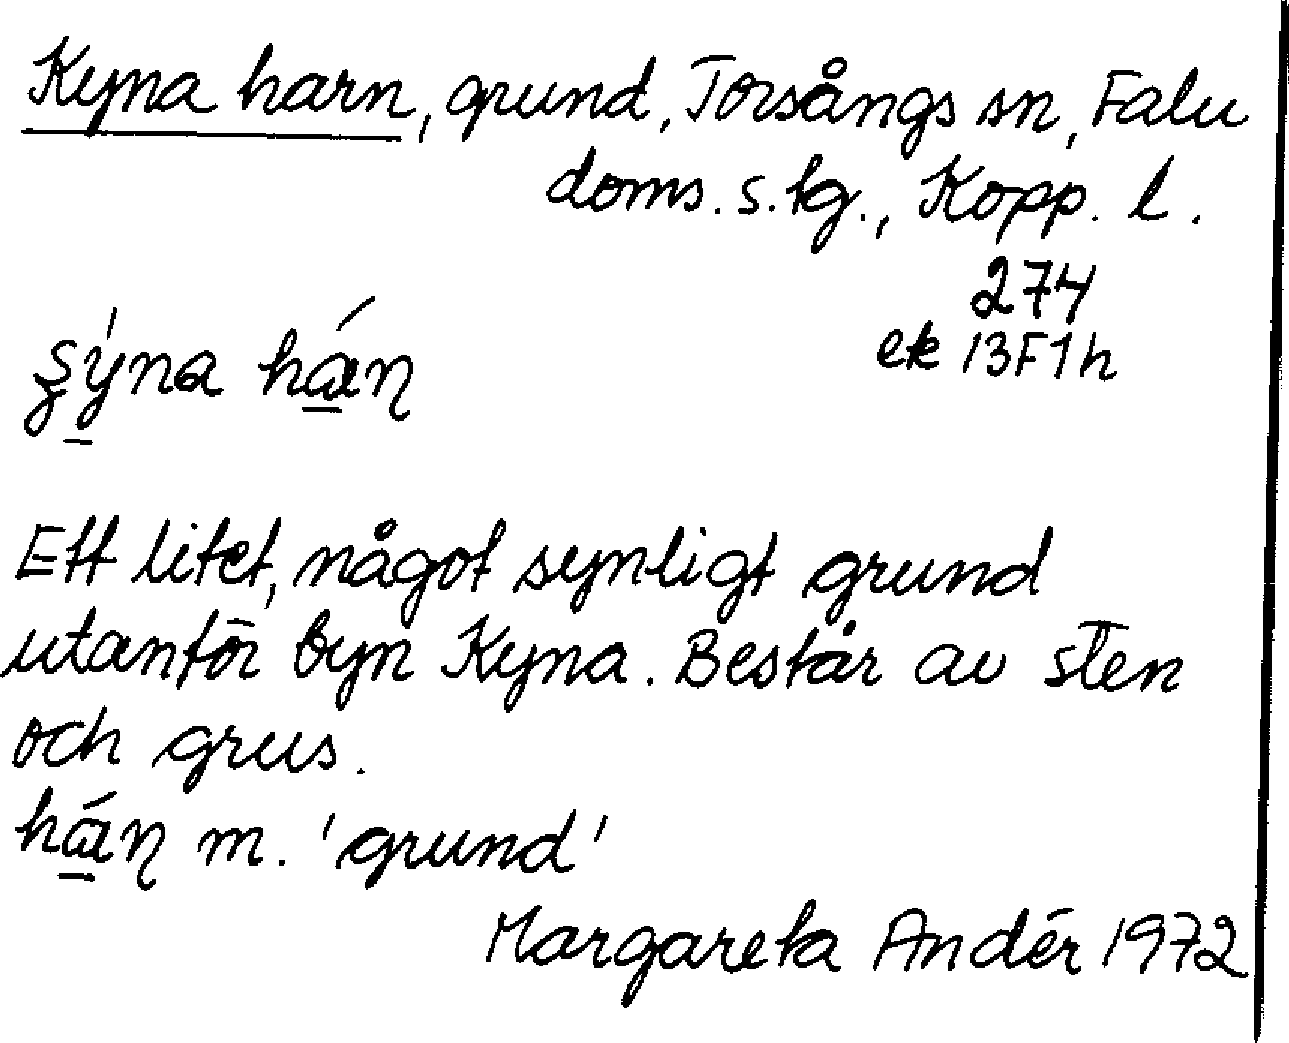 Kyna harn, grund, Torsångs sn, Falu
doms. s. tg., Kopp. l.
274
ek 13F1h
ʂý̠na há̠ɳ
Ett litet, något synligt grund
utanför byn Kyna. Består av sten
och grus.
há̠ɳ m. 'grund'
Margareta Andér 1972